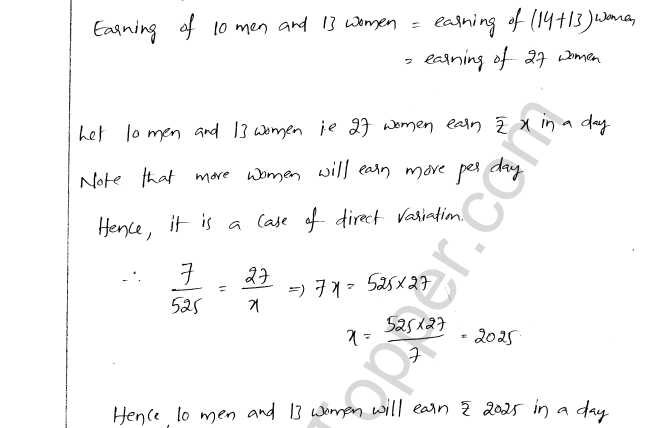 Earning of 10 men and 13 women = earning of (14+13) women
= earning of 27 women
Let 10 men and 13 women ie 27 women earn ₹ x in a day
Note that more women will earn more per day
Hence, it is a case of direct variation.
∴ 7/525 = 27/x => 7x = 525×27
x = 525×27/7 = 2025
Hence, 10 men and 13 women will earn ₹ 2025 in a day
Topper.com